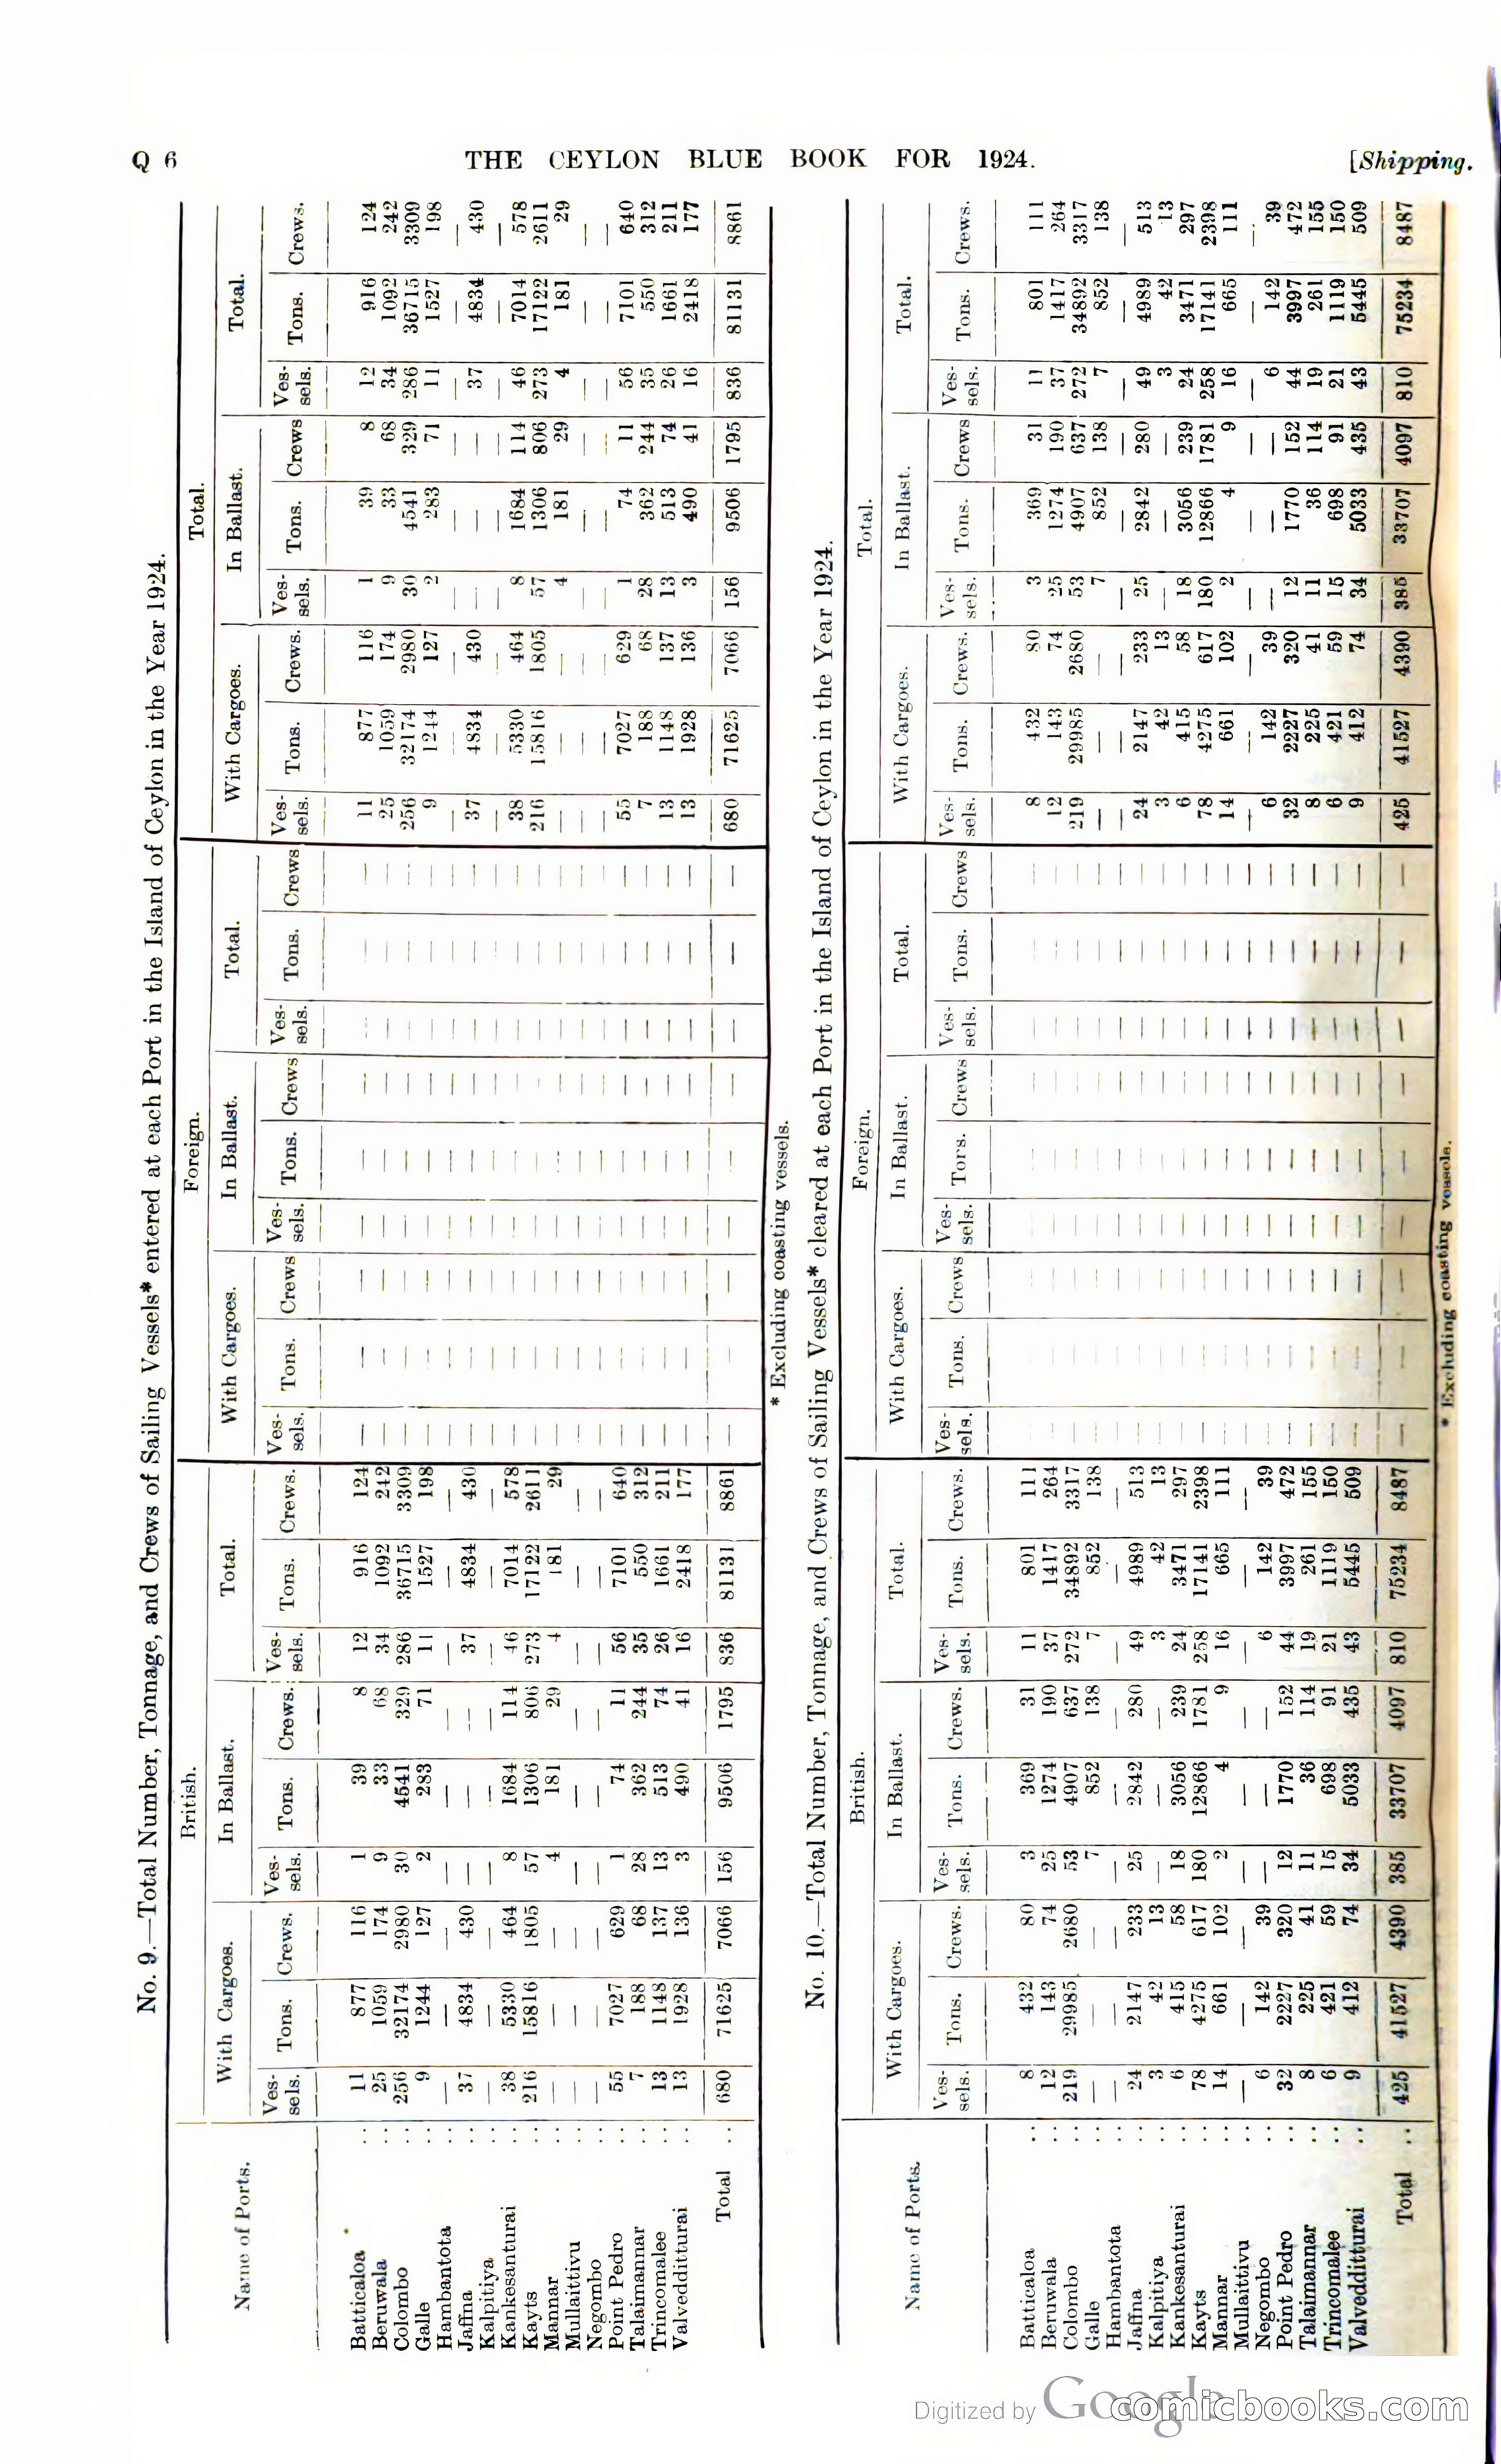 Q 6 THE CEYLON BLUE BOOK FOR 1924. [Shipping.
No. 9.—Total Number, Tonnage, and Crews of Sailing Vessels* entered at each Port in the Island of Ceylon in the Year 1924.
British. Foreign. Total.
Name of Ports. With Cargoes. In Ballast. Total. With Cargoes. In Ballast. Total. With Cargoes. In Ballast. Total.
Ves-sels. Tons. Crews. Ves-sels. Tons. Crews. Ves-sels. Tons. Crews. Ves-sels. Tons. Crews Ves-sels. Tons. Crews Ves-sels. Tons. Crews Ves-sels. Tons. Crews. Ves-sels. Tons. Crews Ves-sels. Tons. Crews.
Batticaloa .. 11 877 116 1 39 8 12 916 124 — — — — — — — — — 11 877 116 1 39 8 12 916 124
Beruwala .. 25 1059 174 9 33 68 34 1092 242 — — — — — — — — — 25 1059 174 9 33 68 34 1092 242
Colombo .. 256 32174 2980 30 4541 329 286 36715 3309 — — — — — — — — — 256 32174 2980 30 4541 329 286 36715 3309
Galle .. 9 1244 127 2 283 71 11 1527 198 — — — — — — — — — 9 1244 127 2 283 71 11 1527 198
Hambantota .. — — — — — — — — — — — — — — — — — — — — — — — — — — —
Jaffna .. 37 4834 430 — — — 37 4834 430 — — — — — — — — — 37 4834 430 — — — 37 4834 430
Kalpitiya .. — — — — — — — — — — — — — — — — — — — — — — — — — — —
Kankesanturai .. 38 5330 464 8 1684 114 46 7014 578 — — — — — — — — — 38 5330 464 8 1684 114 46 7014 578
Kayts .. 216 15816 1805 57 1306 806 273 17122 2611 — — — — — — — — — 216 15816 1805 57 1306 806 273 17122 2611
Mannar .. — — — 4 181 29 4 181 29 — — — — — — — — — — — — 4 181 29 4 181 29
Mullaittivu .. — — — — — — — — — — — — — — — — — — — — — — — — — — —
Negombo .. — — — — — — — — — — — — — — — — — — — — — — — — — — —
Point Pedro .. 55 7027 629 1 74 11 56 7101 640 — — — — — — — — — 55 7027 629 1 74 11 56 7101 640
Talaimannar .. 7 188 68 28 362 244 35 550 312 — — — — — — — — — 7 188 68 28 362 244 35 550 312
Trincomalee .. 13 1148 137 13 513 74 26 1661 211 — — — — — — — — — 13 1148 137 13 513 74 26 1661 211
Valvedditturai .. 13 1928 136 3 490 41 16 2418 177 — — — — — — — — — 13 1928 136 3 490 41 16 2418 177
Total .. 680 71625 7066 156 9506 1795 836 81131 8861 — — — — — — — — — 680 71625 7066 156 9506 1795 836 81131 8861
* Excluding coasting vessels.
No. 10.—Total Number, Tonnage, and Crews of Sailing Vessels* cleared at each Port in the Island of Ceylon in the Year 1924.
British. Foreign. Total.
Name of Ports. With Cargoes. In Ballast. Total. With Cargoes. In Ballast. Total. With Cargoes. In Ballast. Total.
Ves-sels. Tons. Crews. Ves-sels. Tons. Crews. Ves-sels. Tons. Crews. Ves-sels. Tons. Crews Ves-sels. Tors. Crews Ves-sels. Tons. Crews Ves-sels. Tons. Crews. Ves-sels. Tons. Crews Ves-sels. Tons. Crews.
Batticaloa .. 8 432 80 3 369 31 11 801 111 — — — — — — — — — 8 432 80 3 369 31 11 801 111
Beruwala .. 12 143 74 25 1274 190 37 1417 264 — — — — — — — — — 12 143 74 25 1274 190 37 1417 264
Colombo .. 219 29985 2680 53 4907 637 272 34892 3317 — — — — — — — — — 219 29985 2680 53 4907 637 272 34892 3317
Galle .. — — — 7 852 138 7 852 138 — — — — — — — — — — — — 7 852 138 7 852 138
Hambantota .. — — — — — — — — — — — — — — — — — — — — — — — — — — —
Jaffna .. 24 2147 233 25 2842 280 49 4989 513 — — — — — — — — — 24 2147 233 25 2842 280 49 4989 513
Kalpitiya .. 3 42 13 — — — 3 42 13 — — — — — — — — — 3 42 13 — — — 3 42 13
Kankesanturai .. 6 415 58 18 3056 239 24 3471 297 — — — — — — — — — 6 415 58 18 3056 239 24 3471 297
Kayts .. 78 4275 617 180 12866 1781 258 17141 2398 — — — — — — — — — 78 4275 617 180 12866 1781 258 17141 2398
Mannar .. 14 661 102 2 4 9 16 665 111 — — — — — — — — — 14 661 102 2 4 9 16 665 111
Mullaittivu .. — — — — — — — — — — — — — — — — — — — — — — — — — — —
Negombo .. 6 142 39 — — — 6 142 39 — — — — — — — — — 6 142 39 — — — 6 142 39
Point Pedro .. 32 2227 320 12 1770 152 44 3997 472 — — — — — — — — — 32 2227 320 12 1770 152 44 3997 472
Talaimannar .. 8 225 41 11 36 114 19 261 155 — — — — — — — — — 8 225 41 11 36 114 19 261 155
Trincomalee .. 6 421 59 15 698 91 21 1119 150 — — — — — — — — — 6 421 59 15 698 91 21 1119 150
Valvedditturai .. 9 412 74 34 5033 435 43 5445 509 — — — — — — — — — 9 412 74 34 5033 435 43 5445 509
Total .. 425 41527 4390 385 33707 4097 810 75234 8487 — — — — — — — — — 425 41527 4390 385 33707 4097 810 75234 8487
* Excluding coasting vessels.
Digitized by Google
comicbooks.com